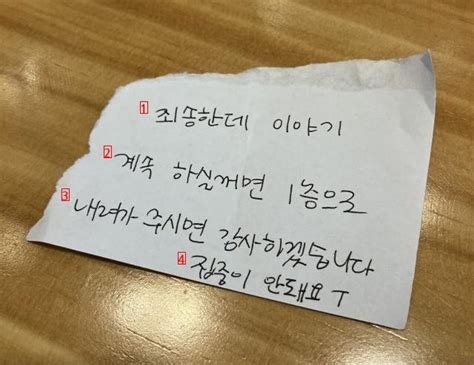 1 죄송한데 이야기
2 계속 하실꺼면 1층으로
3 내려가 주시면 감사하겠습니다
4 집중이 안돼요 ㅜ